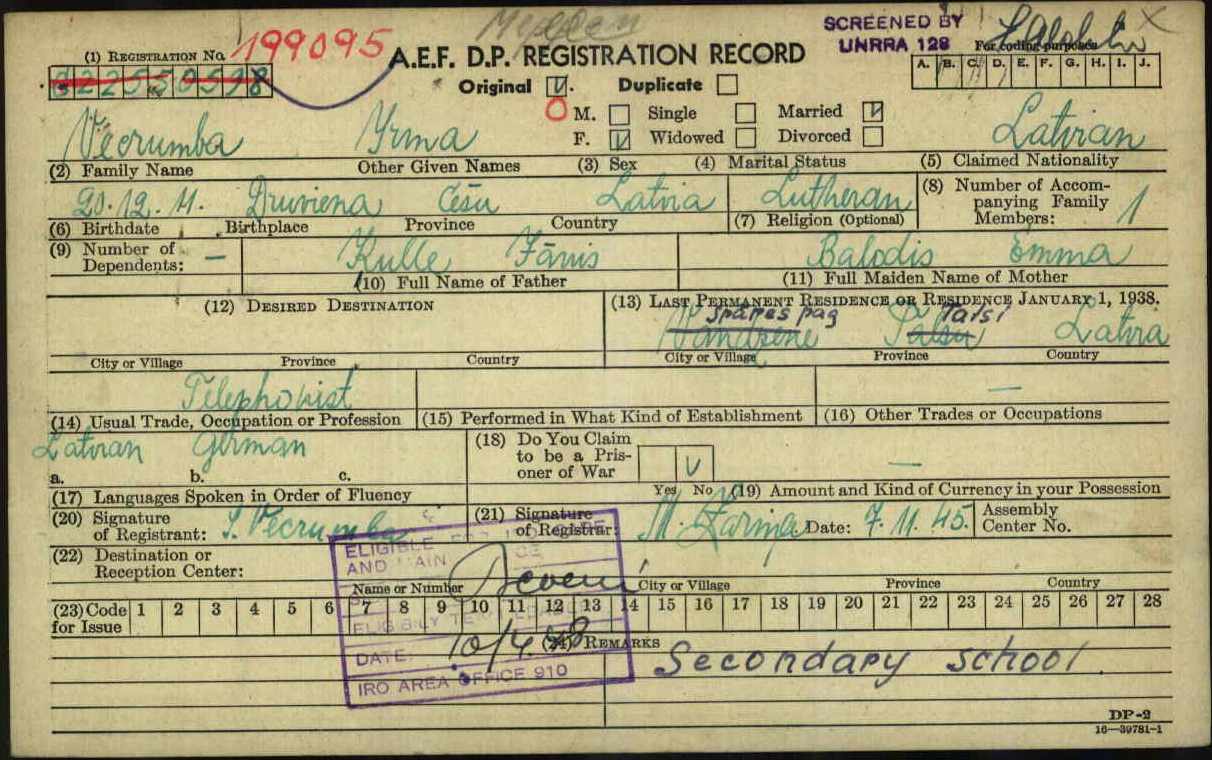 SCREENED BY
UNRRA 128
(1) REGISTRATION No. 199095
A.E.F. D.P. REGISTRATION RECORD
For coding purposes
A. B. C. D. E. F. G. H. I. J.
Original V. Duplicate
M. Single Married V
F. V Widowed Divorced
Vecrumba Yrma Latvian
(2) Family Name Other Given Names (3) Sex (4) Marital Status (5) Claimed Nationality
20.12.11. Druviena Cēsu Latvia Lutheran
(8) Number of Accompanying Family Members: 1
(6) Birthdate Birthplace Province Country (7) Religion (Optional)
(9) Number of Dependents: — Kulle Jānis Balodis Emma
(10) Full Name of Father (11) Full Maiden Name of Mother
(12) DESIRED DESTINATION (13) LAST PERMANENT RESIDENCE OR RESIDENCE JANUARY 1, 1938.
Spāres pag Talsi
Vandzene Talsu Latvia
City or Village Province Country City or Village Province Country
Telephonist —
(14) Usual Trade, Occupation or Profession (15) Performed in What Kind of Establishment (16) Other Trades or Occupations
Latvian German
(18) Do You Claim to be a Prisoner of War V —
a. b. c.
(17) Languages Spoken in Order of Fluency Yes No (19) Amount and Kind of Currency in your Possession
(20) Signature of Registrant: I. Vecrumba (21) Signature of Registrar: M. Zariņa Date: 7.11.45. Assembly Center No.
(22) Destination or Reception Center:
Name or Number City or Village Province Country
(23) Code for Issue 1 2 3 4 5 6 7 8 9 10 11 12 13 14 15 16 17 18 19 20 21 22 23 24 25 26 27 28
ELIGIBLE
AND
DATE: 10/4.48
IRO AREA OFFICE 910
(24) REMARKS
Secondary school
DP-2
16—39781-1